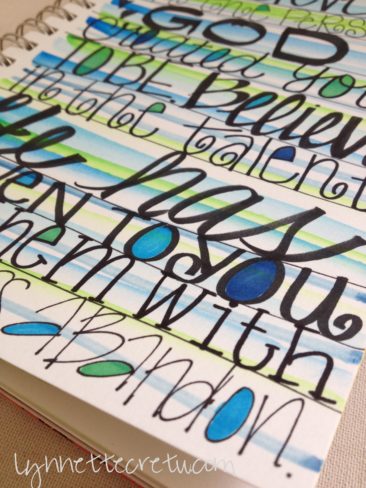 the PERSO
GOD
created you
TO BE. Believ
in the talent
He has
EN TO you
hem with
S ABANdON.
lynnettecretu.com